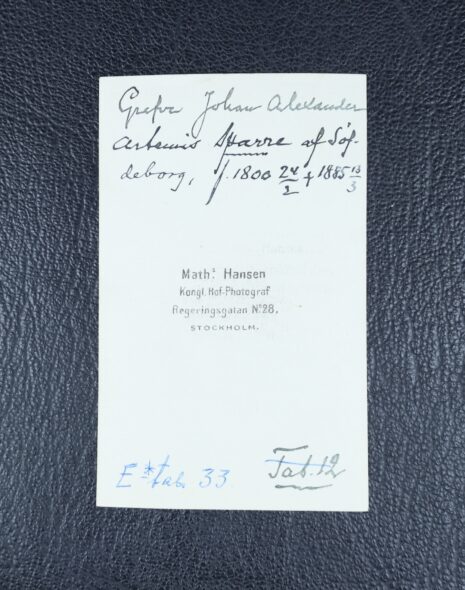 Grefve Johan Alexander
Artemis Sparre af Söf-
deborg, f. 1800 24/2 † 1885 13/3
Math.s Hansen
Kongl. Hof-Photograf
Regeringsgatan No 28.
STOCKHOLM.
E * tab. 33
Tab. 12